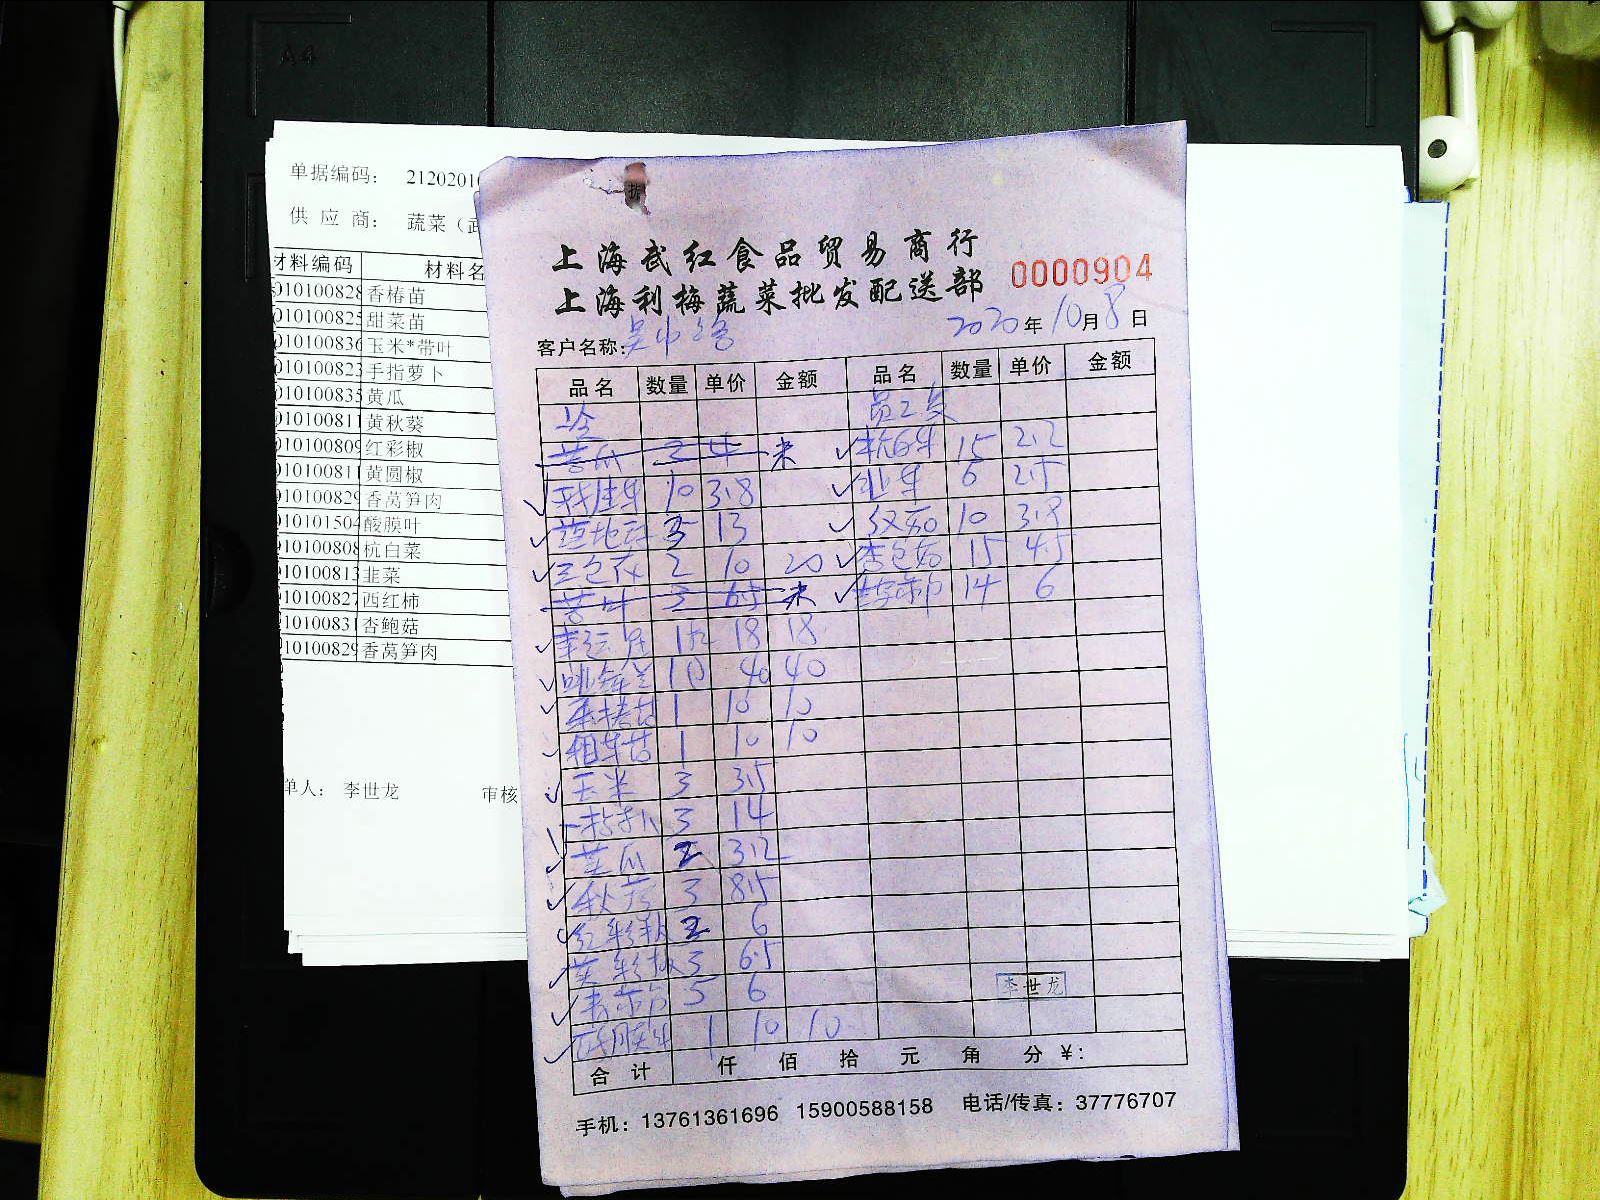 A4
单据编码： 21202010
供 应 商： 蔬菜（武
材料编码 材料名
010100828 香椿苗
010100825 甜菜苗
010100836 玉米*带叶
010100823 手指萝卜
010100835 黄瓜
010100811 黄秋葵
010100809 红彩椒
010100811 黄圆椒
010100829 香莴笋肉
010101504 酸膜叶
010100808 杭白菜
010100813 韭菜
010100827 西红柿
010100831 杏鲍菇
010100829 香莴笋肉
单人： 李世龙 审核
上海武红食品贸易商行
上海利梅蔬菜批发配送部
0000904
客户名称：
2020年10月8日
品名 数量 单价 金额 品名 数量 单价 金额
员工
苦瓜 2 4 未 杭白菜 15 2.2
10 3.8 韭菜 6 2.5
3 13 10 3.8
三色 2 10 20 杏包菇 15 4.5
苦叶 3 6.5 未 14 6
幸运 1 18 18
40 40
1 10 10
1 10 10
玉米 3 3.5
3 14
黄瓜 2 3.2
秋葵 3 8.5
红彩椒 2 6
黄彩椒 3 6.5
5 6
李世龙
1 10 10
合计 仟 佰 拾 元 角 分 ¥：
手机：13761361696 15900588158 电话/传真：37776707